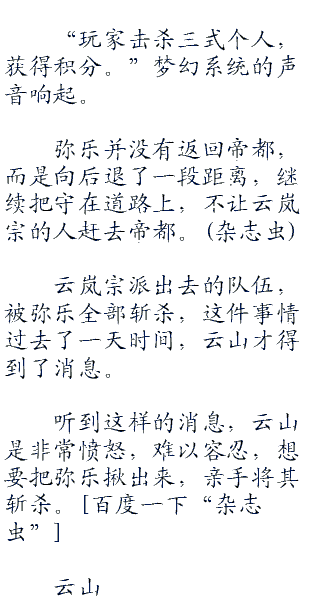 “玩家击杀三式个人，
获得积分。”梦幻系统的声
音响起。
弥乐并没有返回帝都，
而是向后退了一段距离，继
续把守在道路上，不让云岚
宗的人赶去帝都。(杂志虫)
云岚宗派出去的队伍，
被弥乐全部斩杀，这件事情
过去了一天时间，云山才得
到了消息。
听到这样的消息，云山
是非常愤怒，难以容忍，想
要把弥乐揪出来，亲手将其
斩杀。[百度一下“杂志
虫”]
云山